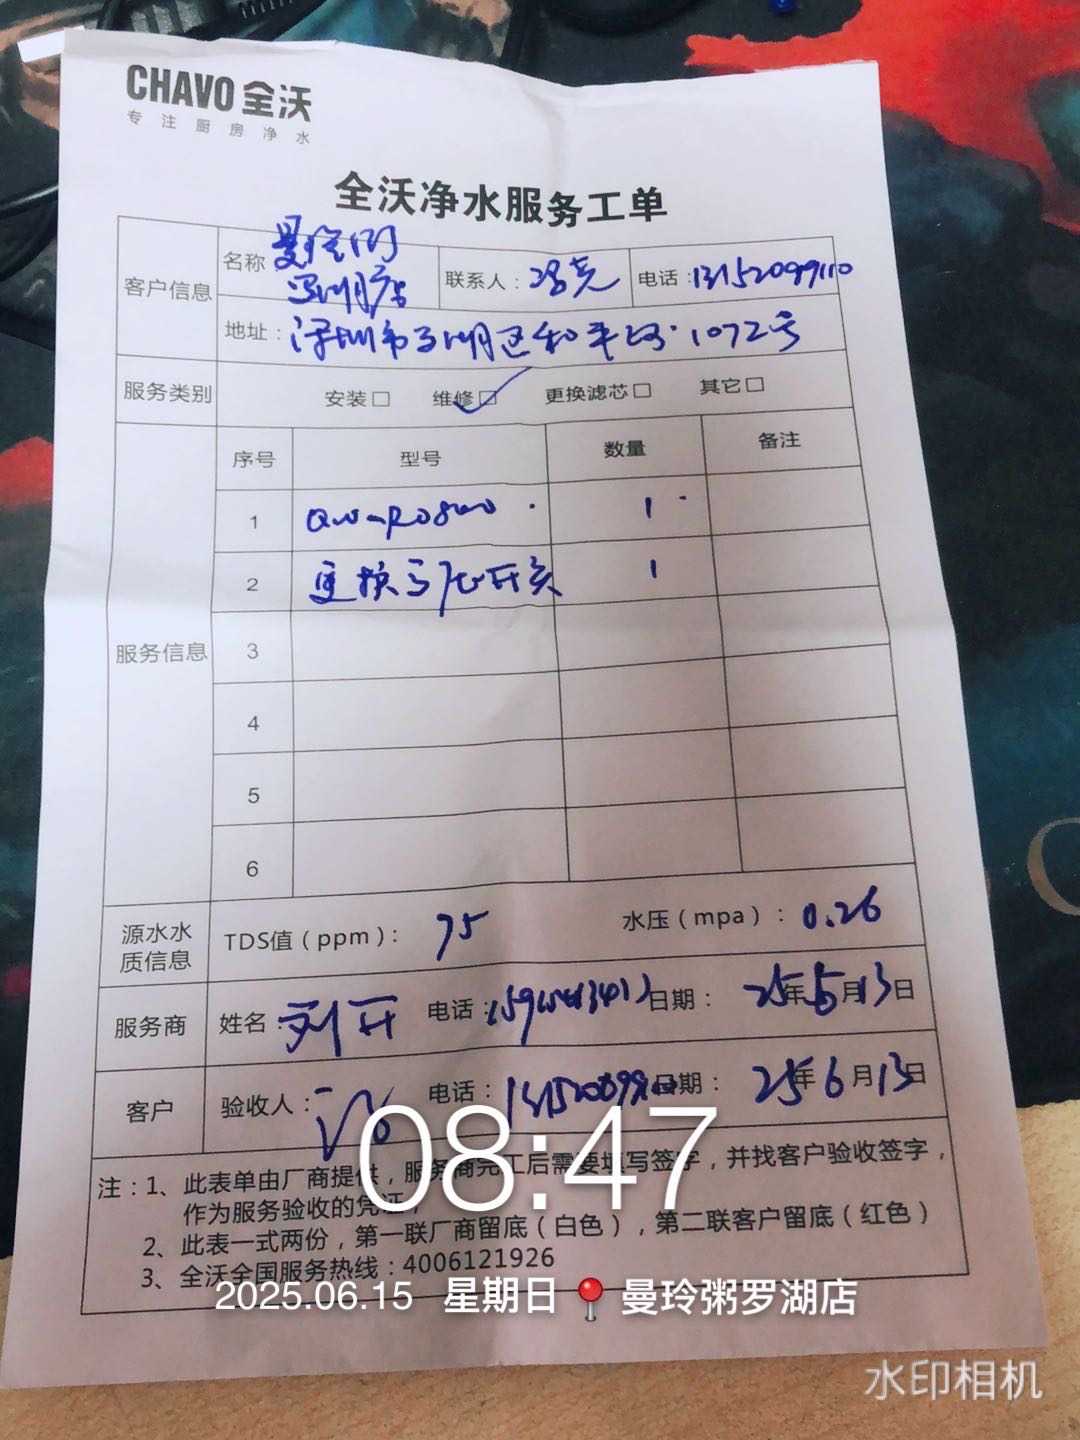 CHAVO 全沃
专注厨房净水
全沃净水服务工单
客户信息 名称 曼玲粥
罗湖店 联系人： 电话：13152099110
地址：深圳市罗湖区和平路1072号
服务类别 安装□ 维修☑ 更换滤芯□ 其它□
服务信息 序号 型号 数量 备注
1 QW-RO800 1
2 更换高压开关 1
3
4
5
6
源水水质信息 TDS值（ppm）： 75 水压（mpa）： 0.26
服务商 姓名：刘开 电话： 日期： 25年6月13日
客户 验收人： 电话：13152099110 日期： 25年6月13日
08:47
注：1、此表单由厂商提供，服务商完工后需要填写签字，并找客户验收签字，
作为服务验收的凭证；
2、此表一式两份，第一联厂商留底（白色），第二联客户留底（红色）
3、全沃全国服务热线：4006121926
2025.06.15 星期日 曼玲粥罗湖店
水印相机